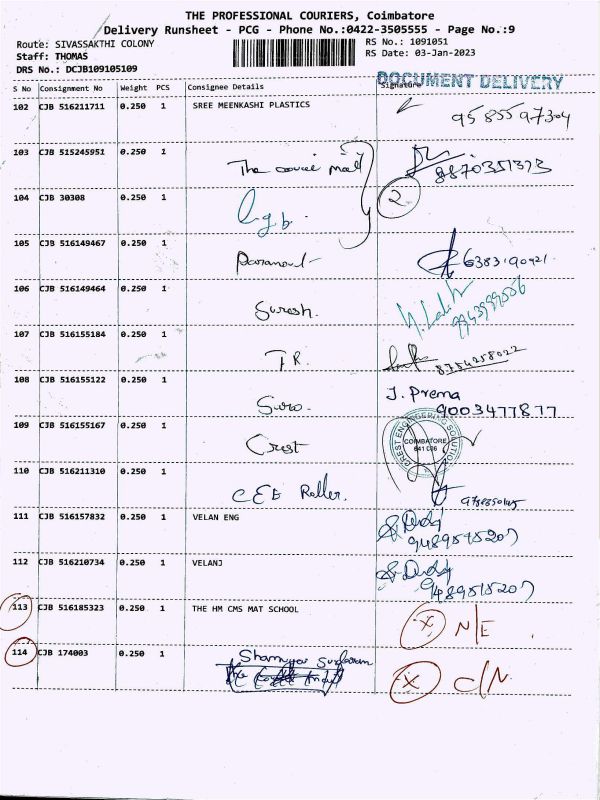 THE PROFESSIONAL COURIERS, Coimbatore
Delivery Runsheet - PCG - Phone No.:0422-3505555 - Page No.:9
Route: SIVASSAKTHI COLONY
Staff: THOMAS
DRS No.: DCJB109105109
RS No.: 1091051
RS Date: 03-Jan-2023
DOCUMENT DELIVERY
S No Consignment No Weight PCS Consignee Details Signature
102 CJB 516211711 0.250 1 SREE MEENKASHI PLASTICS 9585597304
103 CJB 515245951 0.250 1 The covai mail 8870351373
104 CJB 30308 0.250 1 l.g.b. 2
105 CJB 516149467 0.250 1 6383190921
106 CJB 516149464 0.250 1 Suresh. 9943999556
107 CJB 516155184 0.250 1 T R. 8754258022
108 CJB 516155122 0.250 1 Suro. J. Prema
9003477877
109 CJB 516155167 0.250 1 Crest CREST ENGINEERING SOLUTION
COIMBATORE
641 006
110 CJB 516211310 0.250 1 C E E Roller.
111 CJB 516157832 0.250 1 VELAN ENG
9489515207
112 CJB 516210734 0.250 1 VELANJ
9489515207
113 CJB 516185323 0.250 1 THE HM CMS MAT SCHOOL X N/E
114 CJB 174003 0.250 1 X C/N